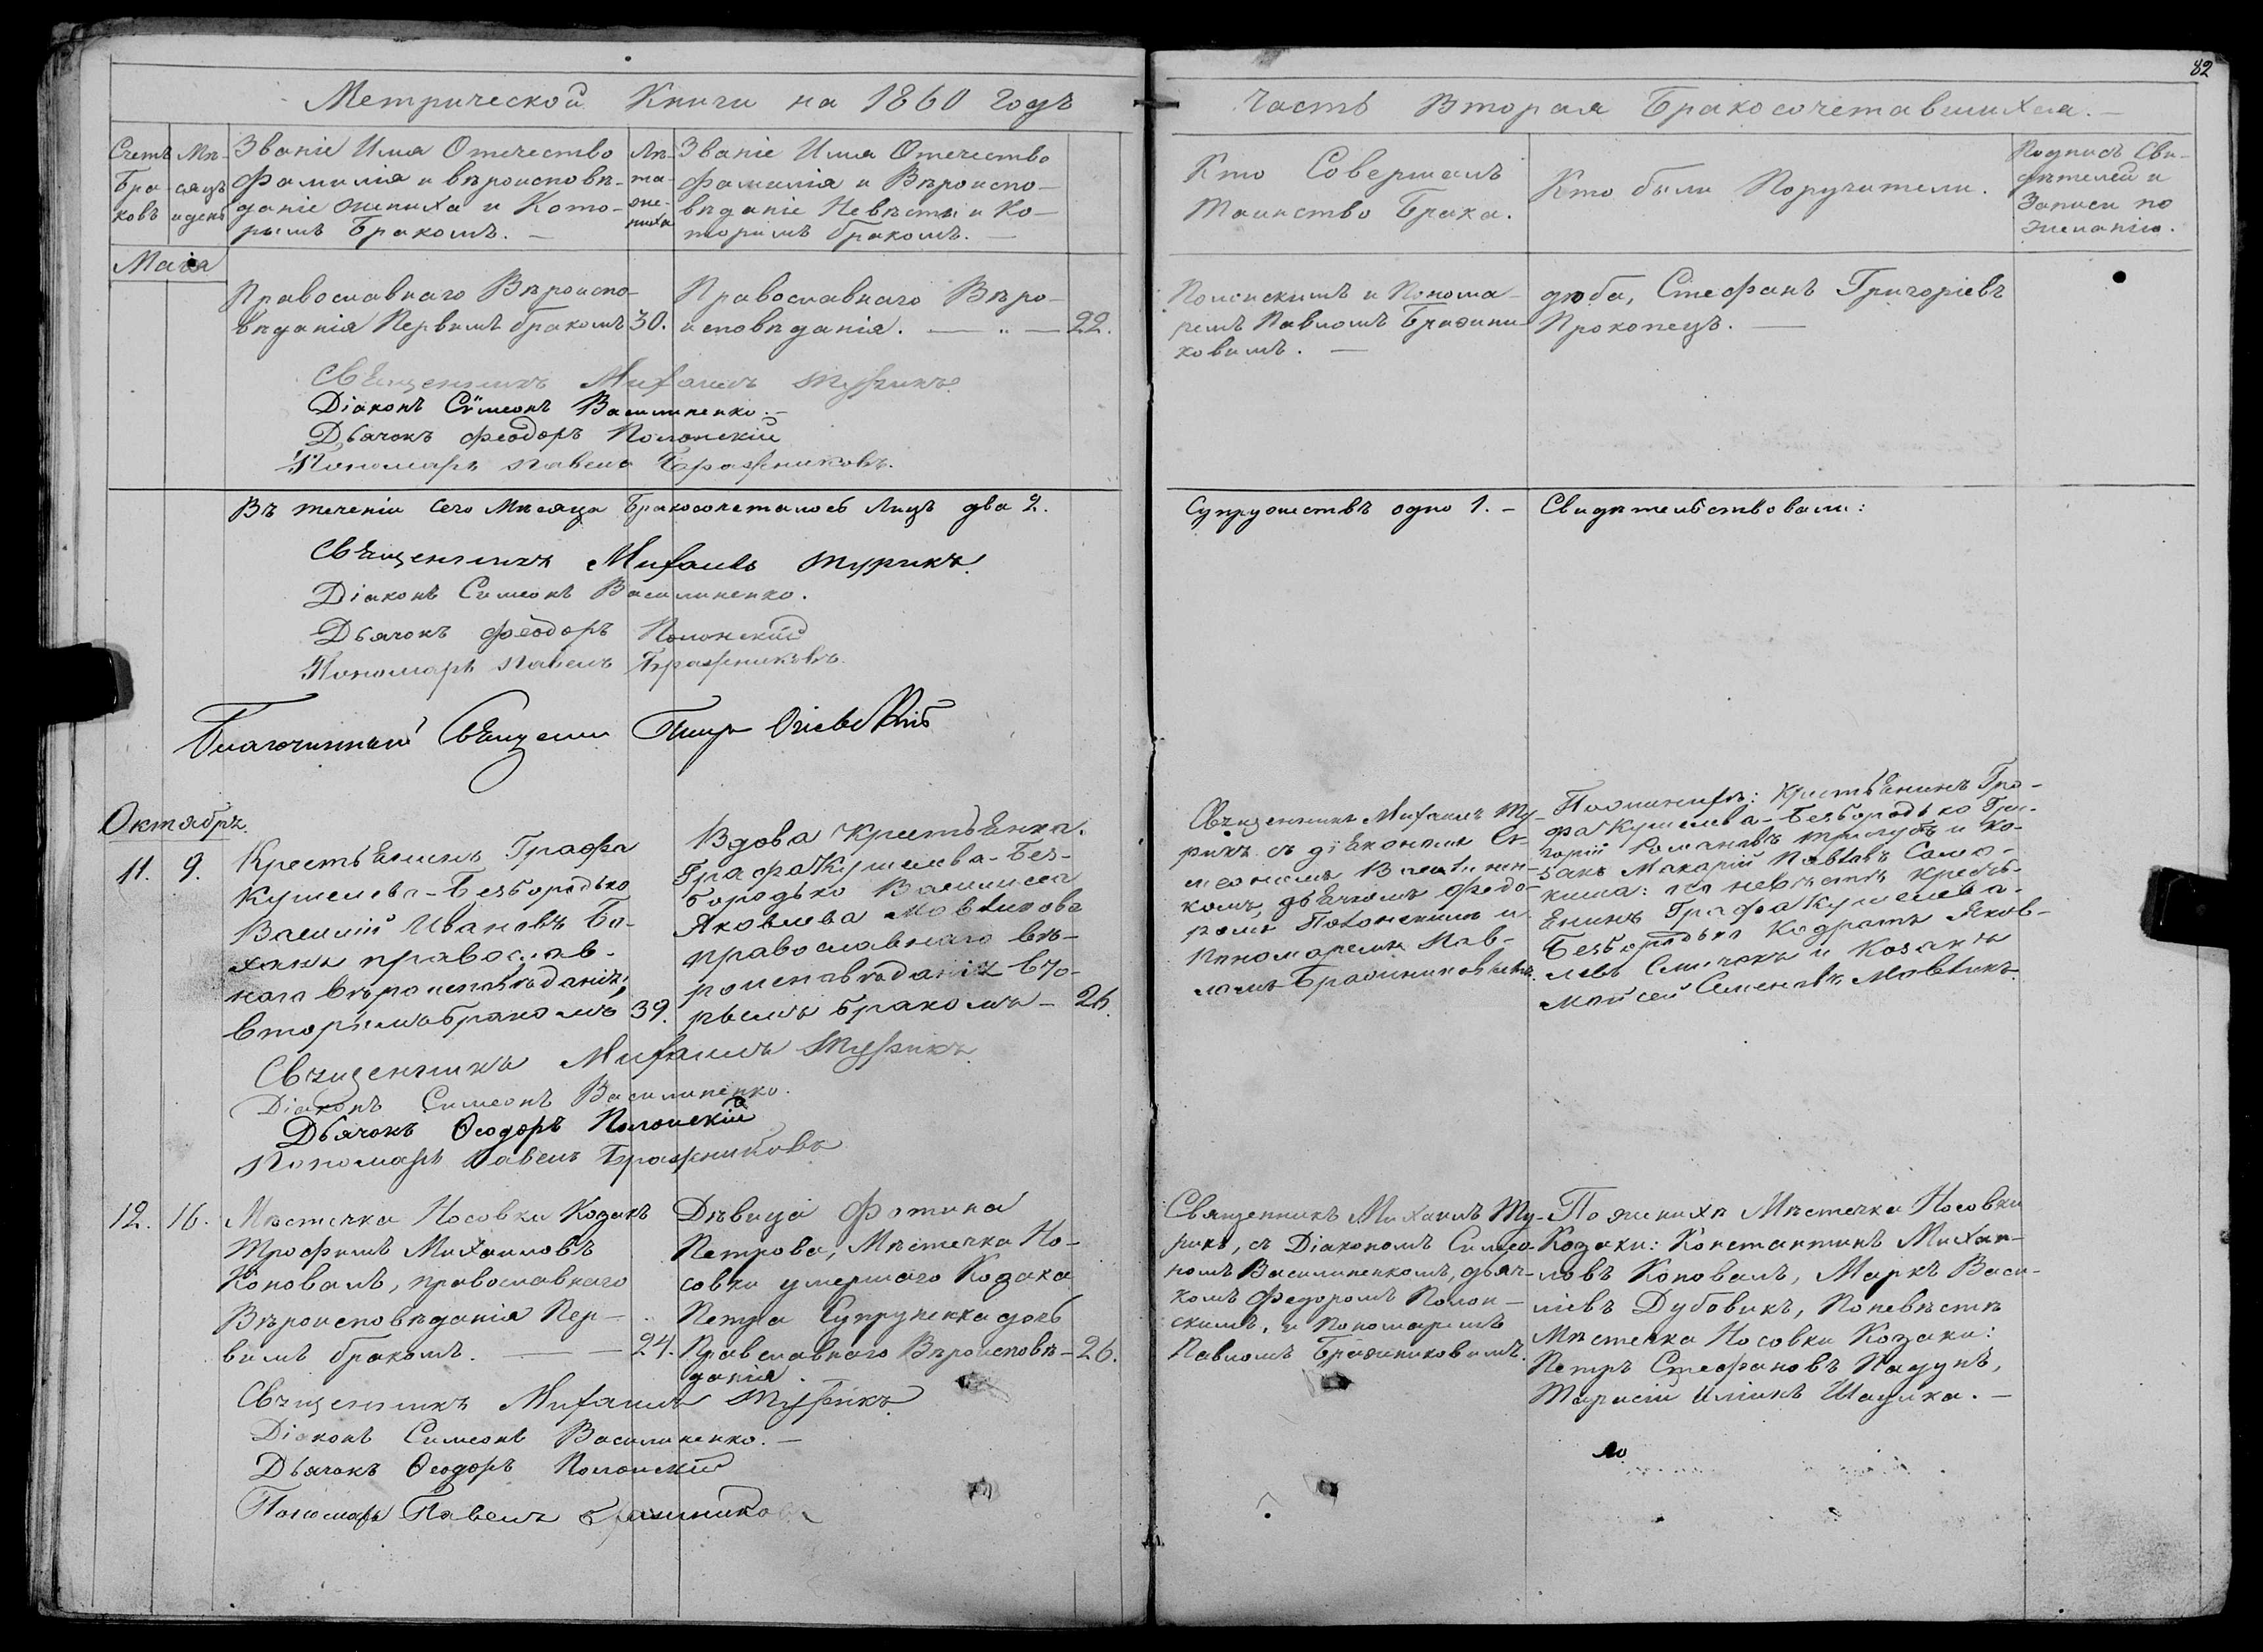 82
Метрической Книги на 1860 годъ
Счетъ Бра-ковъ
Мѣ-сяцъ и день
Званіе Имя Отечество
Фамилія и вѣроисповѣ-
даніе жениха и Кото-
рымъ Бракомъ. —
Лѣ-та же-ниха
Званіе Имя Отечество
Фамилія и Вѣроиспо-
вѣданіе Невѣсты и Ко-
торимъ бракомъ. —
Часть Вторая Бракосочетавшихся. —
Кто Совершалъ
Таинство Брака.
Кто были Поручители.
Подпись Сви-
дѣтелей и
Записи по
желанію.
Маія
Православнаго Вѣроиспо-
вѣданія Первимъ бракомъ 30.
Православнаго Вѣро-
исповѣданія. — 22.
Полонскимъ и Понома-
ремъ Павломъ Бражни-
ковимъ. —
дюба, Стефанъ Григоріевъ
Прокопецъ. —
Священникъ Михаилъ Турикъ
Діаконъ Сѵмеонъ Василиненко. —
Дьячокъ Феодоръ Полонскій
Пономарь Павелъ Бражниковъ.
Въ теченіи сего Мѣсяца Бракосочеталось Лицъ два 2.
Супружествъ одно 1. — Свидѣтельствовали:
Священникъ Михаилъ Турикъ
Діаконъ Симеонъ Василиненко.
Дьячокъ Феодоръ Полонскій
Пономарь Павелъ Бражниковъ
Благочинный Священн
Октябрь
11. 9.
Крестьянинъ Графа
Кушелева-Безбородько
Василій Ивановъ Бо-
православ-
наго вѣроисповѣданія,
вторымъ бракомъ 39.
Вдова крестьянка
Графа Кушелева-Без-
бородько Василиса
Яковлева
православнаго вѣ-
роисповѣданія вто-
рымъ бракомъ — 26.
Священникъ Михаилъ Ту-
рикъ съ діякономъ Си-
меономъ Василинен-
комъ, дьячкомъ Федо-
ромъ Полонскимъ и
Пономаремъ Пав-
ломъ Бражниковымъ.
По женихѣ: Крестьянинъ Гра-
фа Кушелева-Безбородько Гри-
горій Романовъ и ко-
закъ Макарій Павловъ
по невѣстѣ кресть-
янинъ Графа Кушелева-
Безбородька Кодратъ Яков-
левъ и Козакъ
Мойсей Семеновъ
Священникъ Михаилъ Турикъ
Діаконъ Симеонъ Василиненко.
Дьячокъ Ѳеодоръ Полонскій
Пономарь Павелъ Бражниковъ
12. 16.
Мѣстечка Носовки Козакъ
Трофимъ Михаиловъ
Коновалъ, православнаго
Вѣроисповѣданія Пер-
вимъ бракомъ. — 24.
Дѣвица Фотина
Петрова, Мѣстечка Но-
совки умершаго Козака
Петра Супруненка дочь
Православнаго Вѣроисповѣ- 26.
данія.
Священникъ Михаилъ Ту-
рикъ, съ Діакономъ Симео-
номъ Василиненкомъ, дьяч-
комъ Федоромъ Полон-
скимъ, и Пономаремъ
Павломъ Бражниковимъ.
По женихѣ Мѣстечка Носовки
Козаки: Константинъ Михаи-
ловъ Коновалъ, Маркъ Васи-
ліевъ Дубовикъ, По невѣстѣ
Мѣстечка Носовки Козаки:
Петръ Стефановъ Падунъ,
Тарасій Иліинъ
Священникъ Михаилъ Турикъ
Діаконъ Симеонъ Василиненко. —
Дьячокъ Ѳеодоръ Полонскій
Пономарь Павелъ Бражниковъ